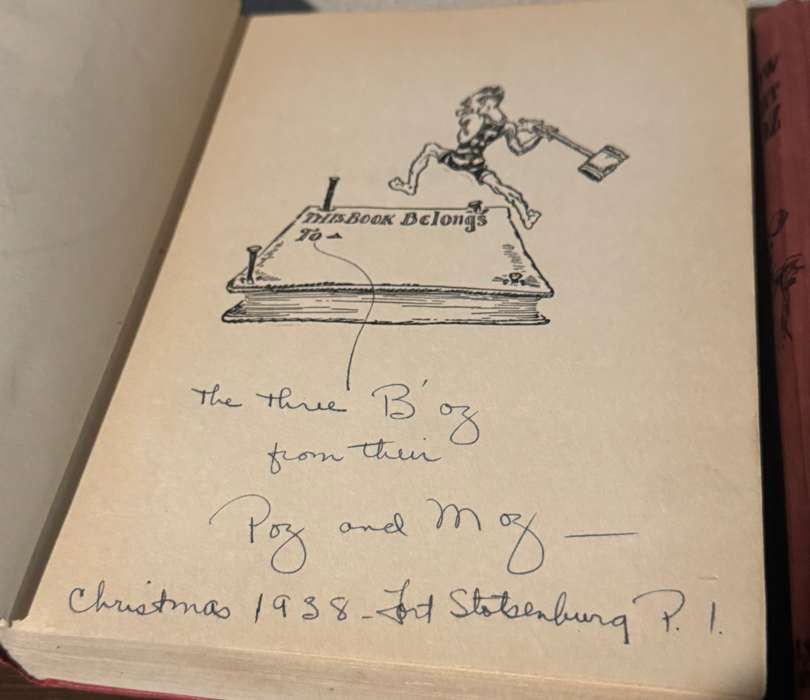 This Book Belongs
To
The three B'oz
from their
Poz and Moz —
Christmas 1938 - Fort Stotsenburg P. I.